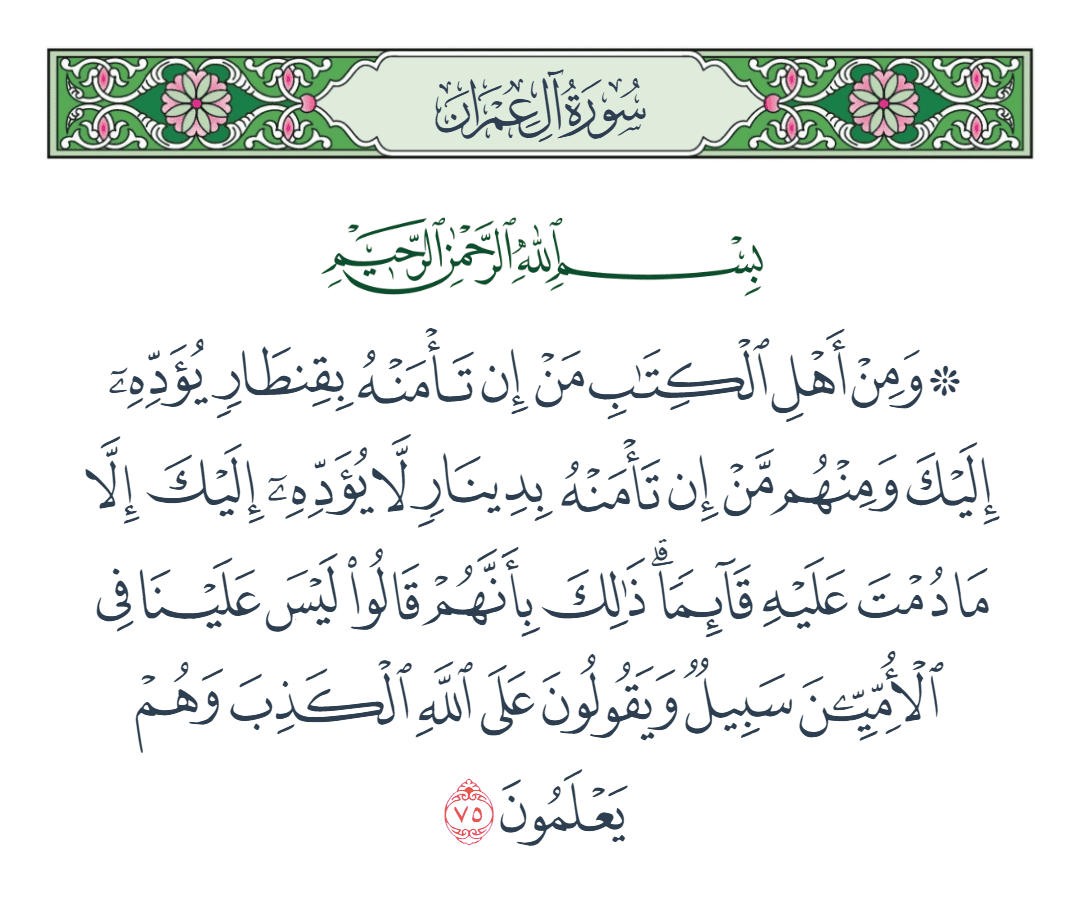 سُورَةُ آلِ عِمْرَانَ
بِسْمِ ٱللَّهِ ٱلرَّحْمَٰنِ ٱلرَّحِيمِ
۞ وَمِنْ أَهْلِ ٱلْكِتَٰبِ مَنْ إِن تَأْمَنْهُ بِقِنطَارٍ يُؤَدِّهِۦٓ
إِلَيْكَ وَمِنْهُم مَّنْ إِن تَأْمَنْهُ بِدِينَارٍ لَّا يُؤَدِّهِۦٓ إِلَيْكَ إِلَّا
مَا دُمْتَ عَلَيْهِ قَآئِمًا ۗ ذَٰلِكَ بِأَنَّهُمْ قَالُوا۟ لَيْسَ عَلَيْنَا فِى
ٱلْأُمِّيِّـۧنَ سَبِيلٌ وَيَقُولُونَ عَلَى ٱللَّهِ ٱلْكَذِبَ وَهُمْ
يَعْلَمُونَ ٧٥